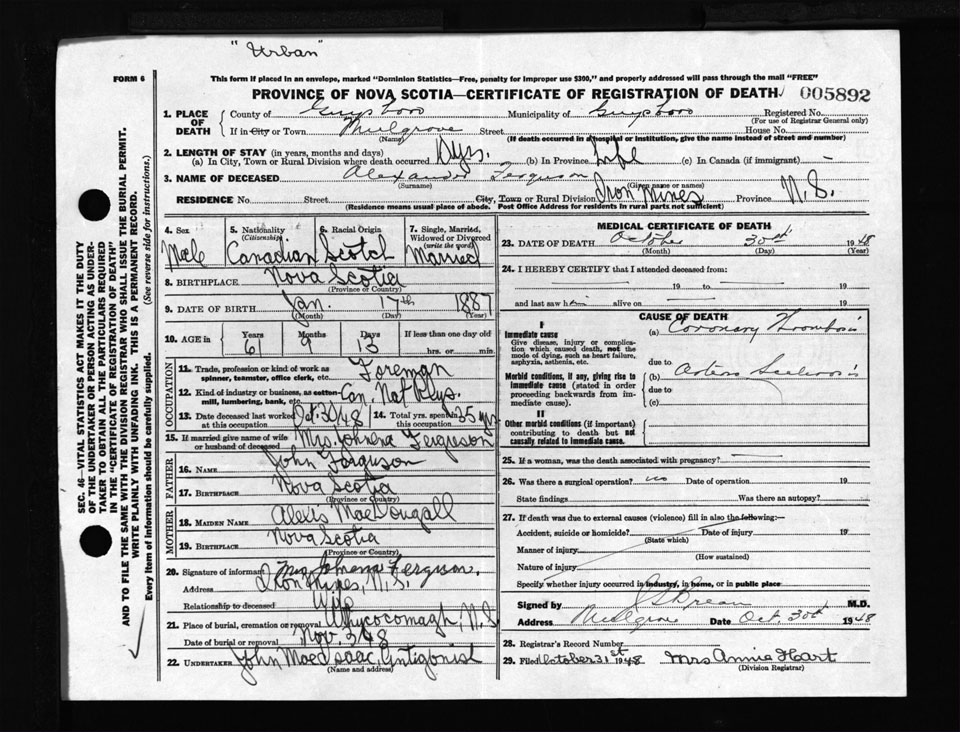 "Urban"
FORM 6
This form if placed in an envelope, marked "Dominion Statistics—Free, penalty for improper use $300," and properly addressed will pass through the mail "FREE"
PROVINCE OF NOVA SCOTIA—CERTIFICATE OF REGISTRATION OF DEATH 005892
SEC. 46—VITAL STATISTICS ACT MAKES IT THE DUTY
OF THE UNDERTAKER OR PERSON ACTING AS UNDER-
TAKER TO OBTAIN ALL THE PARTICULARS REQUIRED
IN THE "CERTIFICATE OF REGISTRATION OF DEATH"
AND TO FILE THE SAME WITH THE DIVISION REGISTRAR WHO SHALL ISSUE THE BURIAL PERMIT.
WRITE PLAINLY WITH UNFADING INK. THIS IS A PERMANENT RECORD.
Every item of information should be carefully supplied. (See reverse side for instructions.)
1. PLACE OF DEATH County of Guysboro Municipality of Guysboro Registered No.
(For use of Registrar General only)
If in City or Town Mulgrave Street House No.
(Name) (If death occurred in a hospital or institution, give the name instead of street and number)
2. LENGTH OF STAY (in years, months and days)
(a) In City, Town or Rural Division where death occurred yrs. (b) In Province Life (c) In Canada (if immigrant) -
3. NAME OF DECEASED Alexander Ferguson
(Surname) (Given name or names)
RESIDENCE No. Street City, Town or Rural Division Iron Mines Province N.S.
(Residence means usual place of abode. Post Office Address for residents in rural parts not sufficient)
4. Sex 5. Nationality (Citizenship) 6. Racial Origin 7. Single, Married, Widowed or Divorced (write the word)
Male Canadian Scotch Married
8. BIRTHPLACE Nova Scotia
(Province or Country)
9. DATE OF BIRTH Jan. 17th 1887
(Month) (Day) (Year)
10. AGE in Years Months Days If less than one day old
61 9 13 hrs. or min.
OCCUPATION
11. Trade, profession or kind of work as spinner, teamster, office clerk, etc. Foreman
12. Kind of industry or business, as cotton mill, lumbering, bank, etc. Can. Nat. Rlys.
13. Date deceased last worked at this occupation Oct. 30/48 14. Total yrs. spent in this occupation 35 yrs
15. If married give name of wife or husband of deceased Mrs. Johnena Ferguson
FATHER
16. Name John Ferguson
17. Birthplace Nova Scotia
(Province or Country)
MOTHER
18. Maiden Name MacDougall
19. Birthplace Nova Scotia
(Province or Country)
20. Signature of informant Mrs Johnena Ferguson.
Address Iron Mines, N.S.
Relationship to deceased Wife
21. Place of burial, cremation or removal Whycocomagh N.S
Date of burial or removal Nov. 3/48
22. UNDERTAKER John MacIsaac, Antigonish
(Name and address)
MEDICAL CERTIFICATE OF DEATH
23. DATE OF DEATH October 30th 1948
(Month) (Day) (Year)
24. I HEREBY CERTIFY that I attended deceased from:
19 to 19
and last saw him alive on 19
CAUSE OF DEATH
I
Immediate cause (a) Coronary Thrombosis
Give disease, injury or complication which caused death, not the mode of dying, such as heart failure, asphyxia, asthenia, etc.
due to
Morbid conditions, if any, giving rise to immediate cause (stated in order proceeding backwards from immediate cause). (b) Arterio Sclerosis
due to
(c)
II
Other morbid conditions (if important) contributing to death but not causally related to immediate cause.
25. If a woman, was the death associated with pregnancy?
26. Was there a surgical operation? no Date of operation 19
State findings Was there an autopsy?
27. If death was due to external causes (violence) fill in also the following:—
Accident, suicide or homicide? Date of injury 19
(State which)
Manner of injury
(How sustained)
Nature of injury
Specify whether injury occurred in industry, in home, or in public place
Signed by M.D.
Address Mulgrave Date Oct. 30th 1948
28. Registrar's Record Number
29. Filed October 31st 1948 Mrs Annie Hart
(Division Registrar)